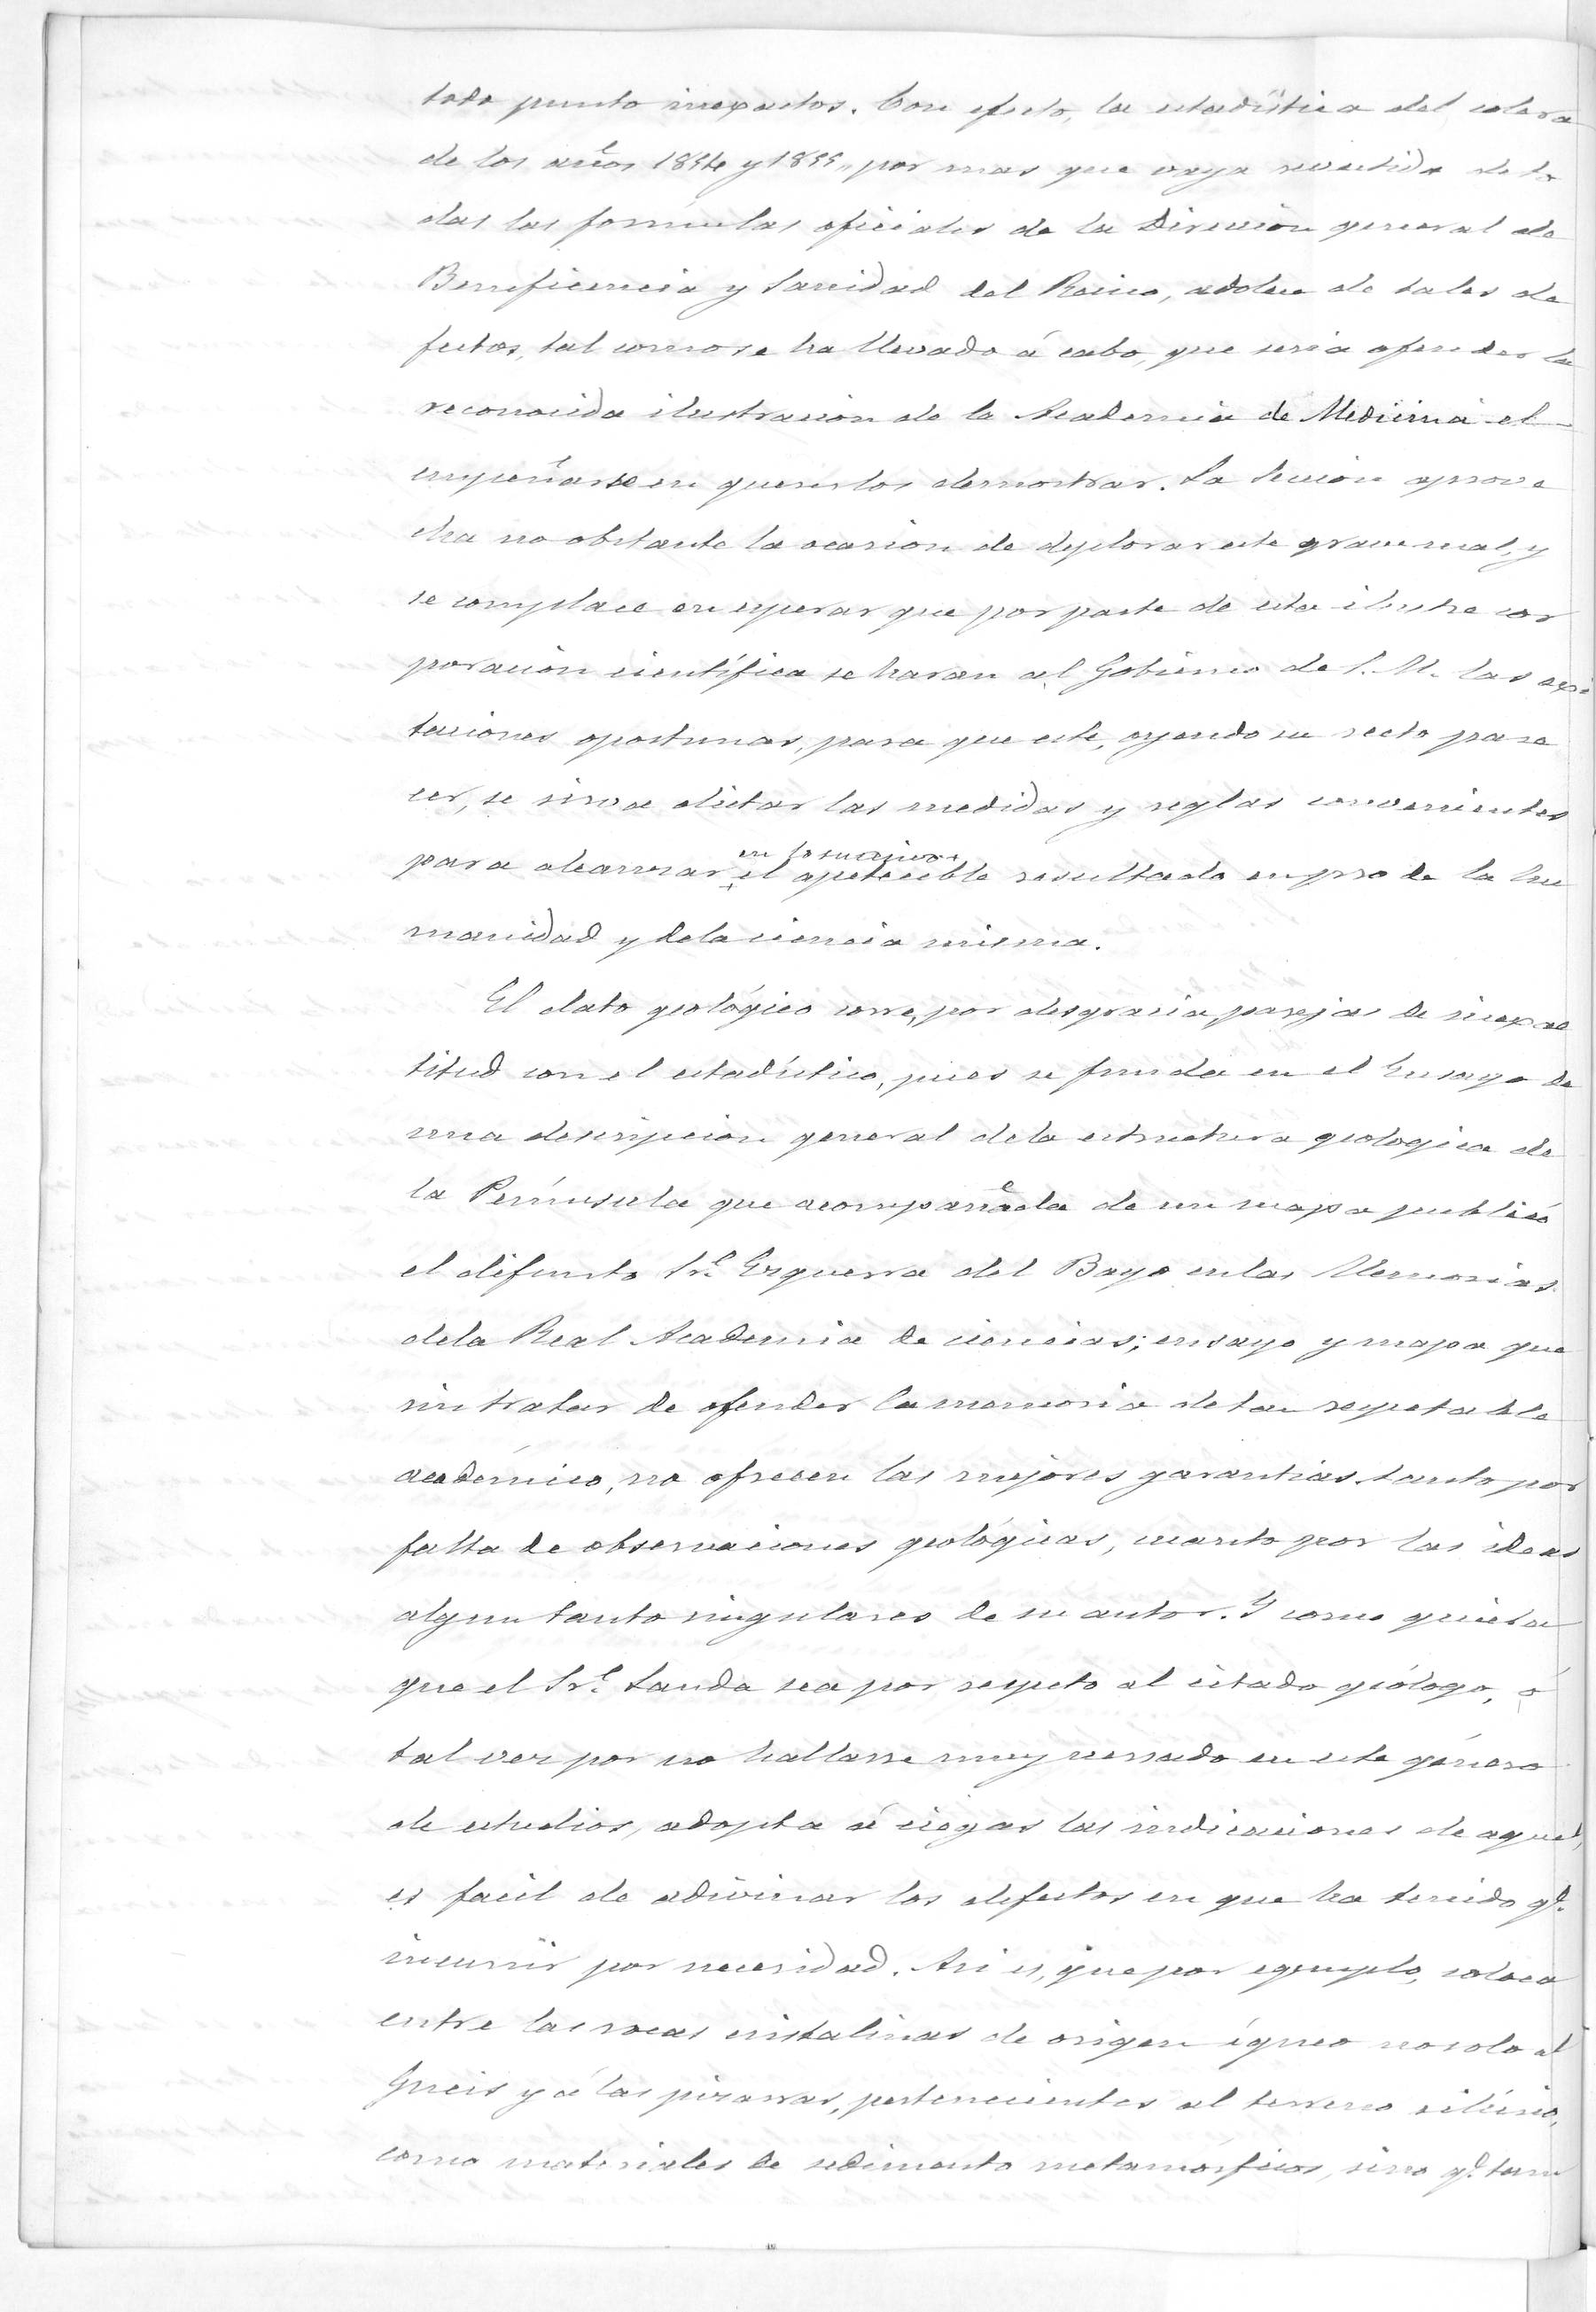 todo punto inexactos. Con efecto, la estadística del colera
de los años 1854 y 1855, por mas que vaya revestida de to
das las formulas oficiales de la Direccion general de
Beneficencia y Sanidad del Reino, adolece de tales de
fectos, tal como se ha llevado á cabo, que seria ofender la
reconocida ilustracion de la Academia de Medicina el
empeñarse en quererlos demostrar. La Seccion aprove
cha no obstante la ocasion de deplorar este grave mal, y
se complace en esperar que por parte de esta ilustre cor
poracion científica se haran al Gobierno de S. M. las exci
taciones oportunas, para que este, oyendo su recto pare
cer, se sirva dictar las medidas y reglas convenientes
para alcanzar en lo sucesivo el apetecible resultado en pro de la hu
manidad y de la ciencia misma.
El dato geológico corre, por desgracia, parejas de inexac
titud con el estadístico, pues se funda en el Ensayo de
una descripcion general de la estructura geologica de
la Península que acompañada de un mapa publicó
el difunto Sr. Ezquerra del Bayo en las Memorias
de la Real Academia de ciencias; ensayo y mapa que
sin tratar de ofender la memoria de tan respetable
académico, no ofrecen las mejores garantias tanto por
falta de observaciones geológicas, cuanto por las ideas
algun tanto singulares de su autor. Y como quiera
que el Sr. Landa sea por respeto al citado geólogo, ó
tal vez por no hallarse muy versado en este género
de estudios, adopta á ciegas las indicaciones de aquel,
es facil de adivinar los defectos en que ha tenido q.
incurrir por necesidad. Asi es, que por egemplo, coloca
entre las rocas cristalinas de origen ígneo no solo al
Gneis y á las pizarras, pertenecientes al terreno silúrico,
como materiales de sedimento metamórficos, sino q. tam